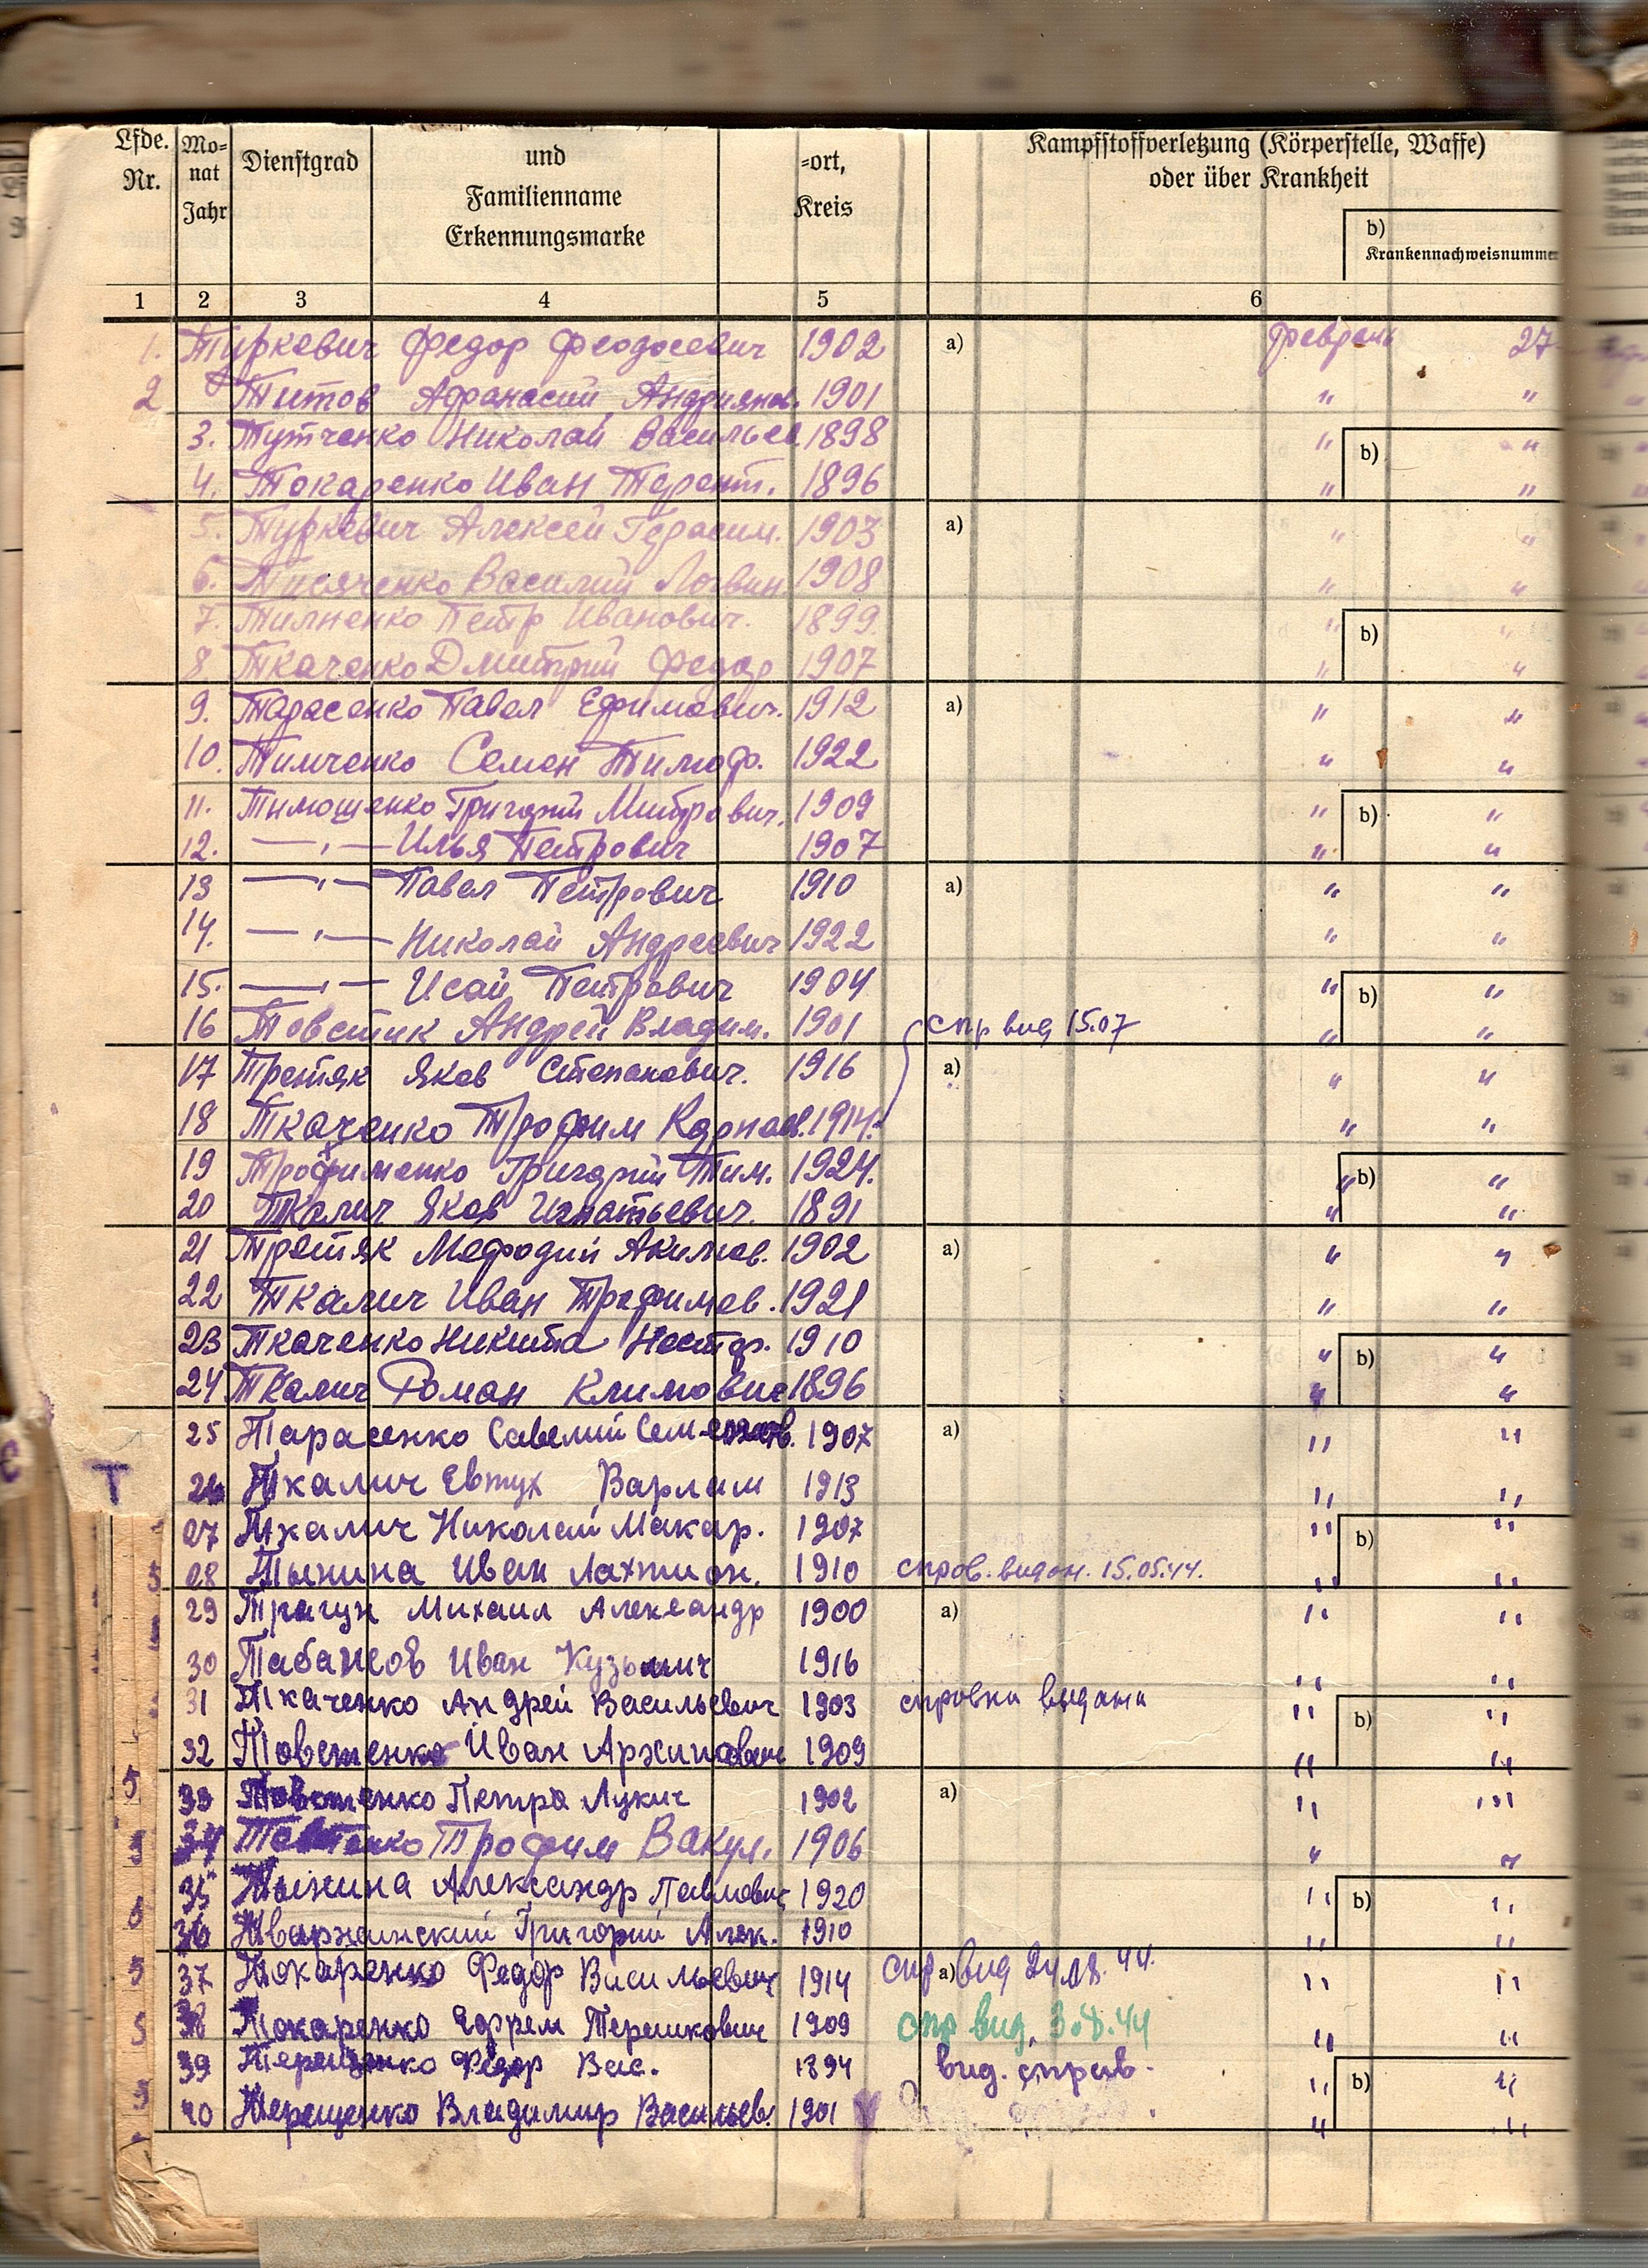 Lfde. Nr.
Mo=
nat
Jahr
Dienstgrad
und
Familienname
Erkennungsmarke
=ort,
Kreis
Kampfstoffverletzung (Körperstelle, Waffe)
oder über Krankheit
b)
Krankennachweisnumme
1 2 3 4 5 6
1. Туркевич Федор Феодосевич 1902 a) февраль 27
2 Титов Афанасий Андриянов. 1901 " "
3. Тутченко Николай Васильев 1898 " b) "
4. Токаренко Иван Терент. 1896 " "
5. Туркевич Алексей Герасим. 1903 a) " "
6. Василий Логвин 1908 " "
7. Петр Иванович. 1899 " b) "
8 Ткаченко Дмитрий Федор 1907 " "
9. Тарасенко Павел Ефимович. 1912 a) " "
10. Тимченко Семен Тимоф. 1922 " "
11. Тимошенко Григорий Митрович. 1909 " b) "
12. —"— Илья Петрович 1907 " "
13 —"— Павел Петрович 1910 a) " "
14. —"— Николай Андреевич 1922 " "
15. —"— Исай Петрович 1904 " b) "
16 Товстик Андрей Владим. 1901 спр вид 15.07 " "
17 Третяк Яков Степанович. 1916 a) " "
18 Ткаченко Трофим Карпов. 1914. " "
19 Трофименко Григорий Тим. 1924. " b) "
20 Ткалич Яков Игнатьевич. 1891 " "
21 Третяк Мефодий Акимов. 1902 a) " "
22 Ткалич Иван Трофимов. 1921 " "
23 Ткаченко Никита Нестер. 1910 " b) "
24 Ткалич Роман Климович 1896 " "
25 Тарасенко Савелий Семенов. 1907 a) " "
26 Ткалич Евтух Варлам 1913 " "
27 Ткалич Николай Макар. 1907 " b) "
28 Тынина Иван Лахтион. 1910 спров. видан. 15.05.44. " "
29 Трагун Михаил Александр 1900 a) " "
30 Табансов Иван Кузьмич 1916 " "
31 Ткаченко Андрей Васильевич 1903 справка выдана " b) "
32 Товстенко Иван Архипович 1909 " "
33 Товстенко Петра Лукич 1902 a) " "
34 Трофим Вакул. 1906 " "
35 Тынина Александр Павлович 1920 " b) "
36 Григорий Алек. 1910 " "
37 Токаренко Федор Васильевич 1914 спр a) вид 44. " "
38 Токаренко Ефрем Терешкович 1909 спр вид. 44 " "
39 Терещенко Федор Вас. 1894 вид. справ. " b) "
40 Терещенко Владимир Васильев. 1901 " "
Т